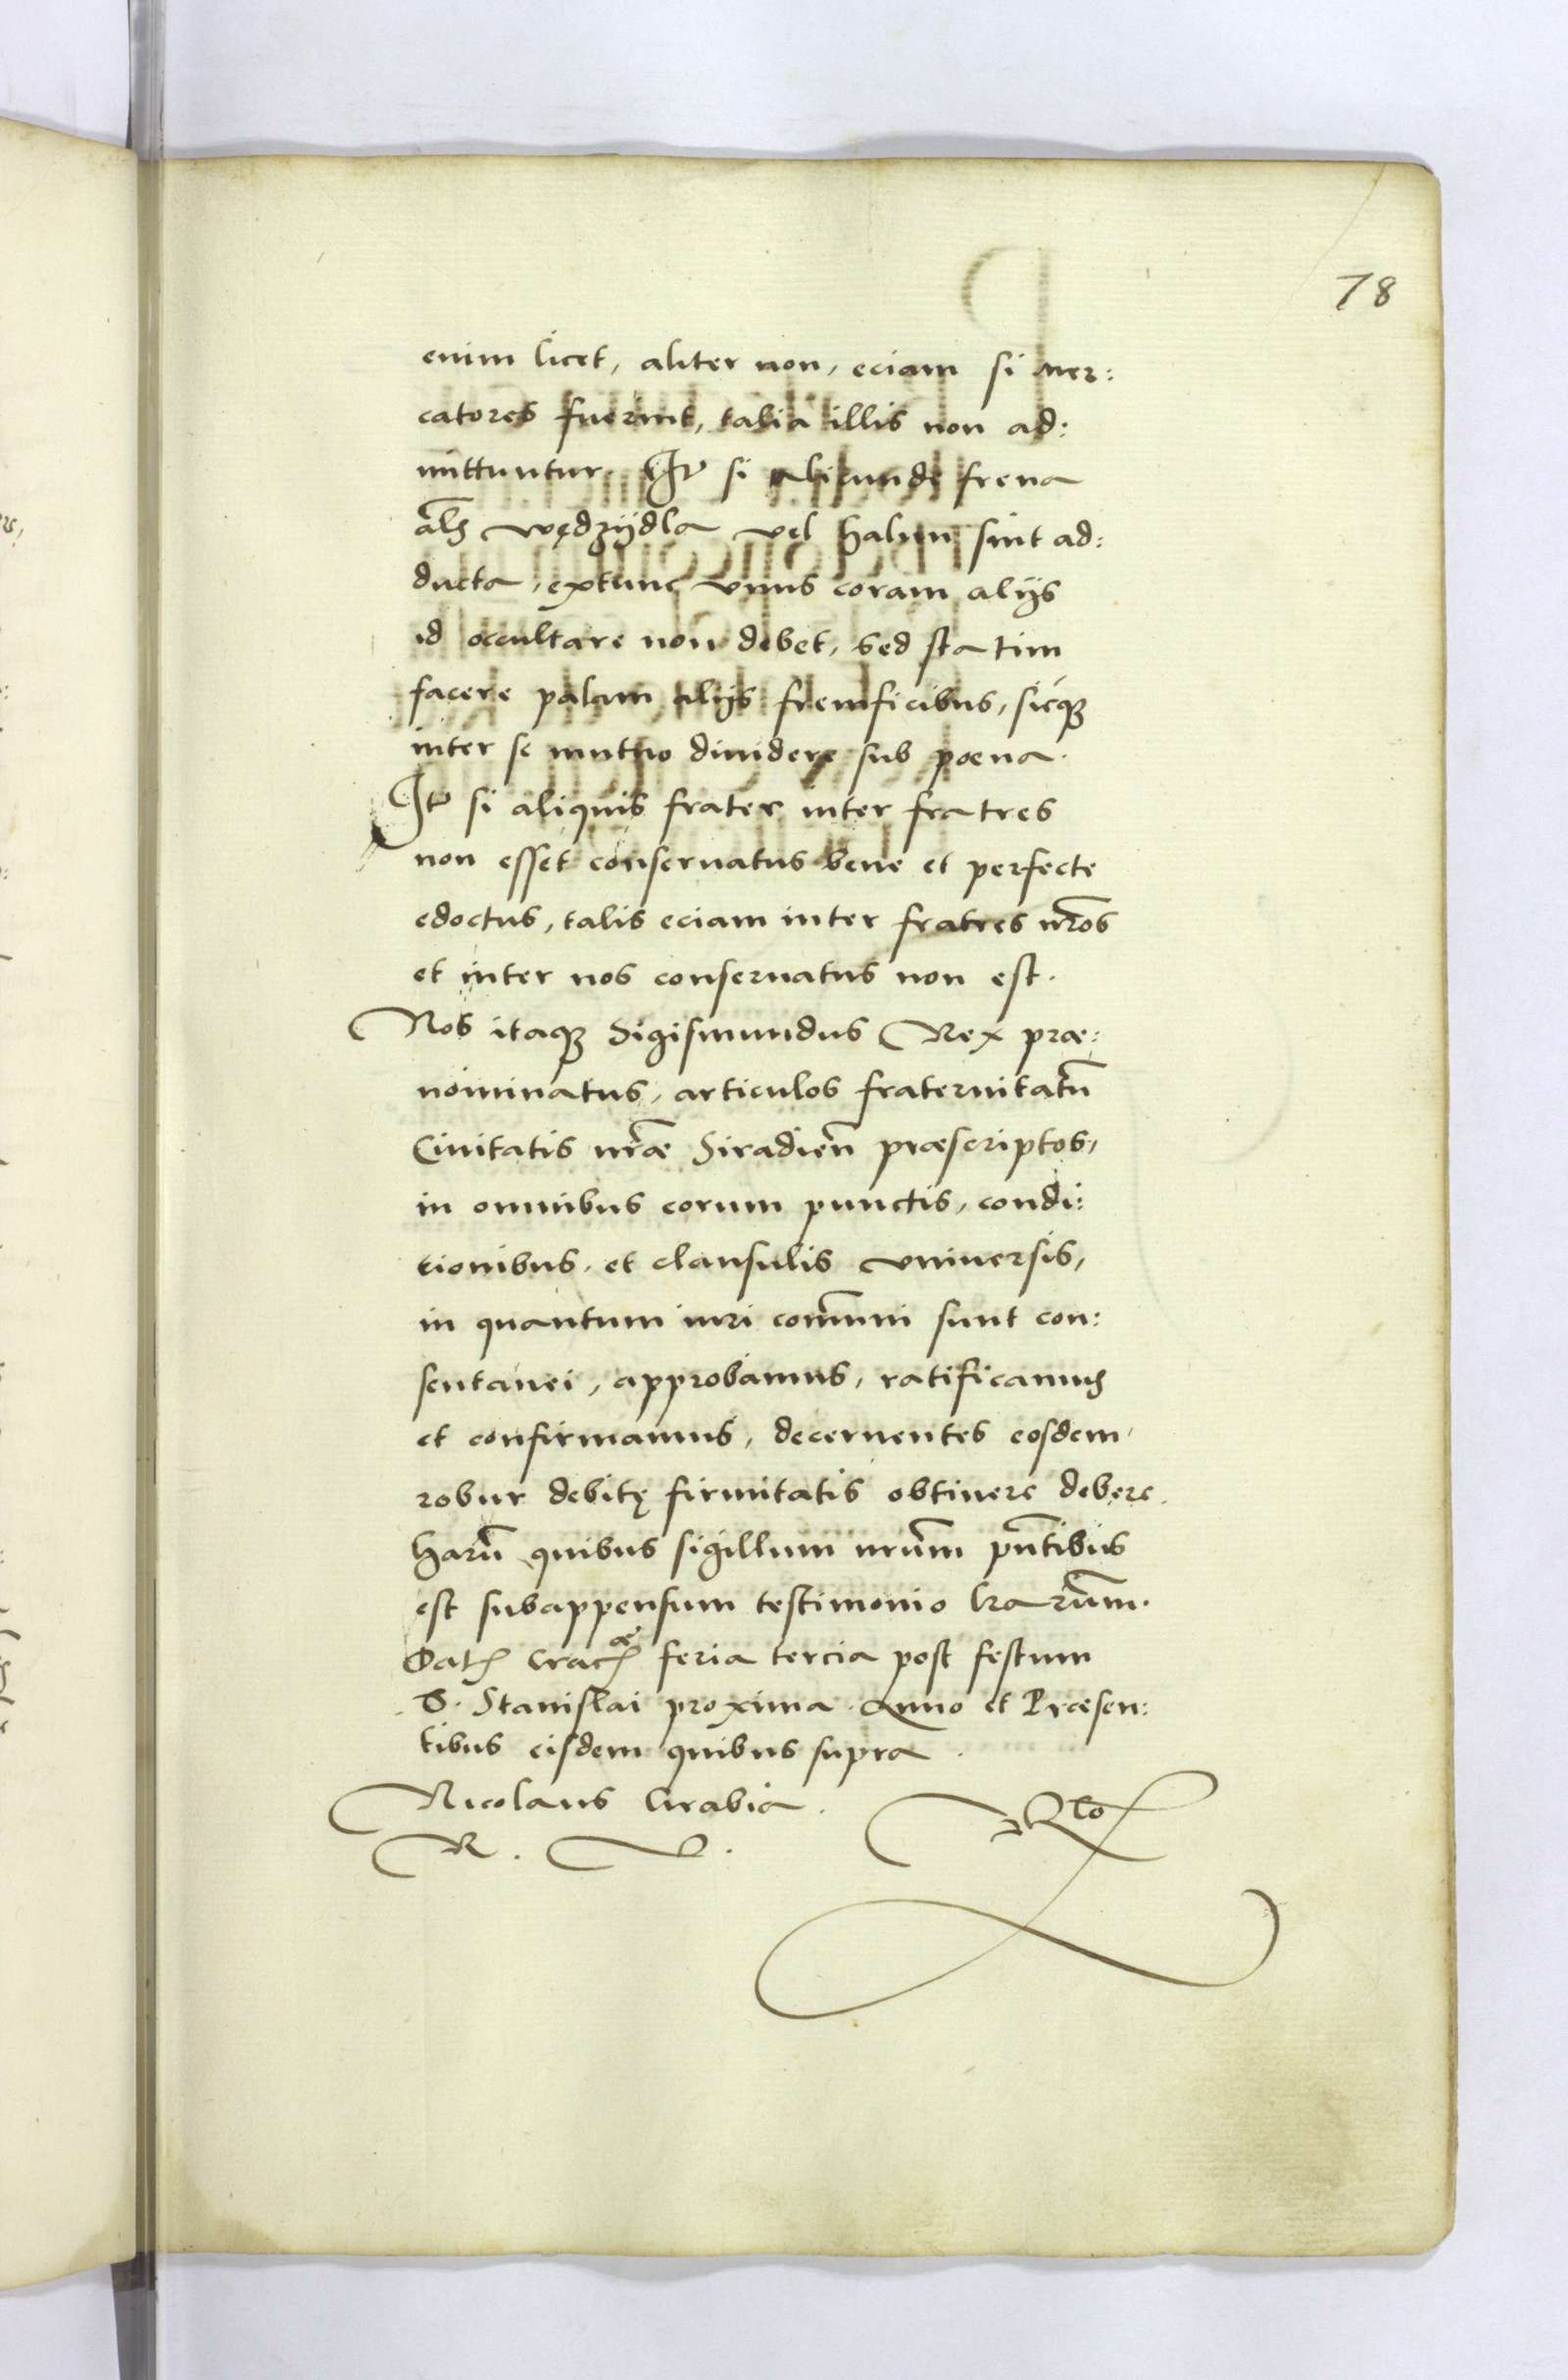 78
enim licet, aliter non, eciam si mer:
catores fuerint, talia illis non ad:
mittuntur. It si alicunde frena
als wędzijdla vel halun sint ad:
ducta, extunc vnus coram alijs
id occultare non debet, sed statim
facere palam alijs frenificibus, sicq́ꝫ
inter se mutuo diuidere sub poena.
It si aliquis frater inter fratres
non esset conseruatus bene et perfecte
edoctus, talis eciam inter fratres nr̃os
et inter nos conseruatus non est.
Nos itaqꝫ Sigismundus Rex præ:
nominatus, articulos fraternitatũ
Ciuitatis nr̃æ Siradień præscriptos,
in omnibus eorum punctis, condi:
tionibus, et clausulis vniuersis,
in quantum iuri com̃uni sunt con:
sentanei, approbamus, ratificamus
et confirmamus, decernentes eosdem,
robur debitę firmitatis obtinere debere.
harũ quibus sigillum nr̃um pñtibus
est subappensum testimonio lr̃arum.
Dat Craciæ feria tercia post festum
S. Stanislai proxima. Anno et Præsen:
tibus eisdem quibus supra.
Nicolaus Grabia.
R. V.